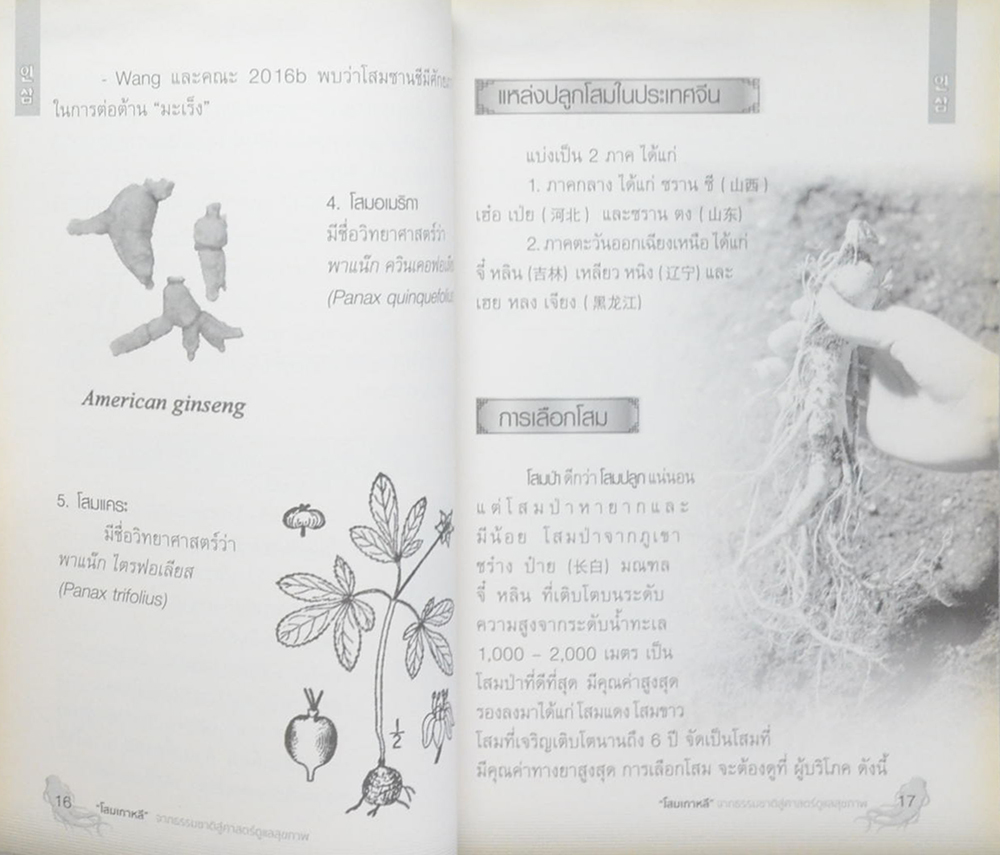 인삼
- Wang และคณะ 2016b พบว่าโสมซานชีมีศักย
ในการต่อต้าน “มะเร็ง”
4. โสมอเมริกา
มีชื่อวิทยาศาสตร์ว่า
พาแน็ก ควินเคอฟอ
(Panax quinquefoliu
American ginseng
5. โสมแคระ
มีชื่อวิทยาศาสตร์ว่า
พาแน็ก ไตรฟอเลียส
(Panax trifolius)
1/2
16
“โสมเกาหลี” จากธรรมชาติสู่ศาสตร์ดูแลสุขภาพ
인삼
แหล่งปลูกโสมในประเทศจีน
แบ่งเป็น 2 ภาค ได้แก่
1. ภาคกลาง ได้แก่ ซราน ซี (山西)
เฮ๋อ เป่ย (河北) และซราน ตง (山东)
2. ภาคตะวันออกเฉียงเหนือ ได้แก่
จี๋ หลิน (吉林) เหลียว หนิง (辽宁) และ
เฮย หลง เจียง (黑龙江)
การเลือกโสม
โสมป่า ดีกว่า โสมปลูก แน่นอน
แต่โสมป่าหายากและ
มีน้อย โสมป่าจากภูเขา
ชร๋าง ป๋าย (长白) มณฑล
จี๋ หลิน ที่เติบโตบนระดับ
ความสูงจากระดับน้ำทะเล
1,000 – 2,000 เมตร เป็น
โสมป่าที่ดีที่สุด มีคุณค่าสูงสุด
รองลงมาได้แก่ โสมแดง โสมขาว
โสมที่เจริญเติบโตนานถึง 6 ปี จัดเป็นโสมที่
มีคุณค่าทางยาสูงสุด การเลือกโสม จะต้องดูที่ ผู้บริโภค ดังนี้
“โสมเกาหลี” จากธรรมชาติสู่ศาสตร์ดูแลสุขภาพ
17